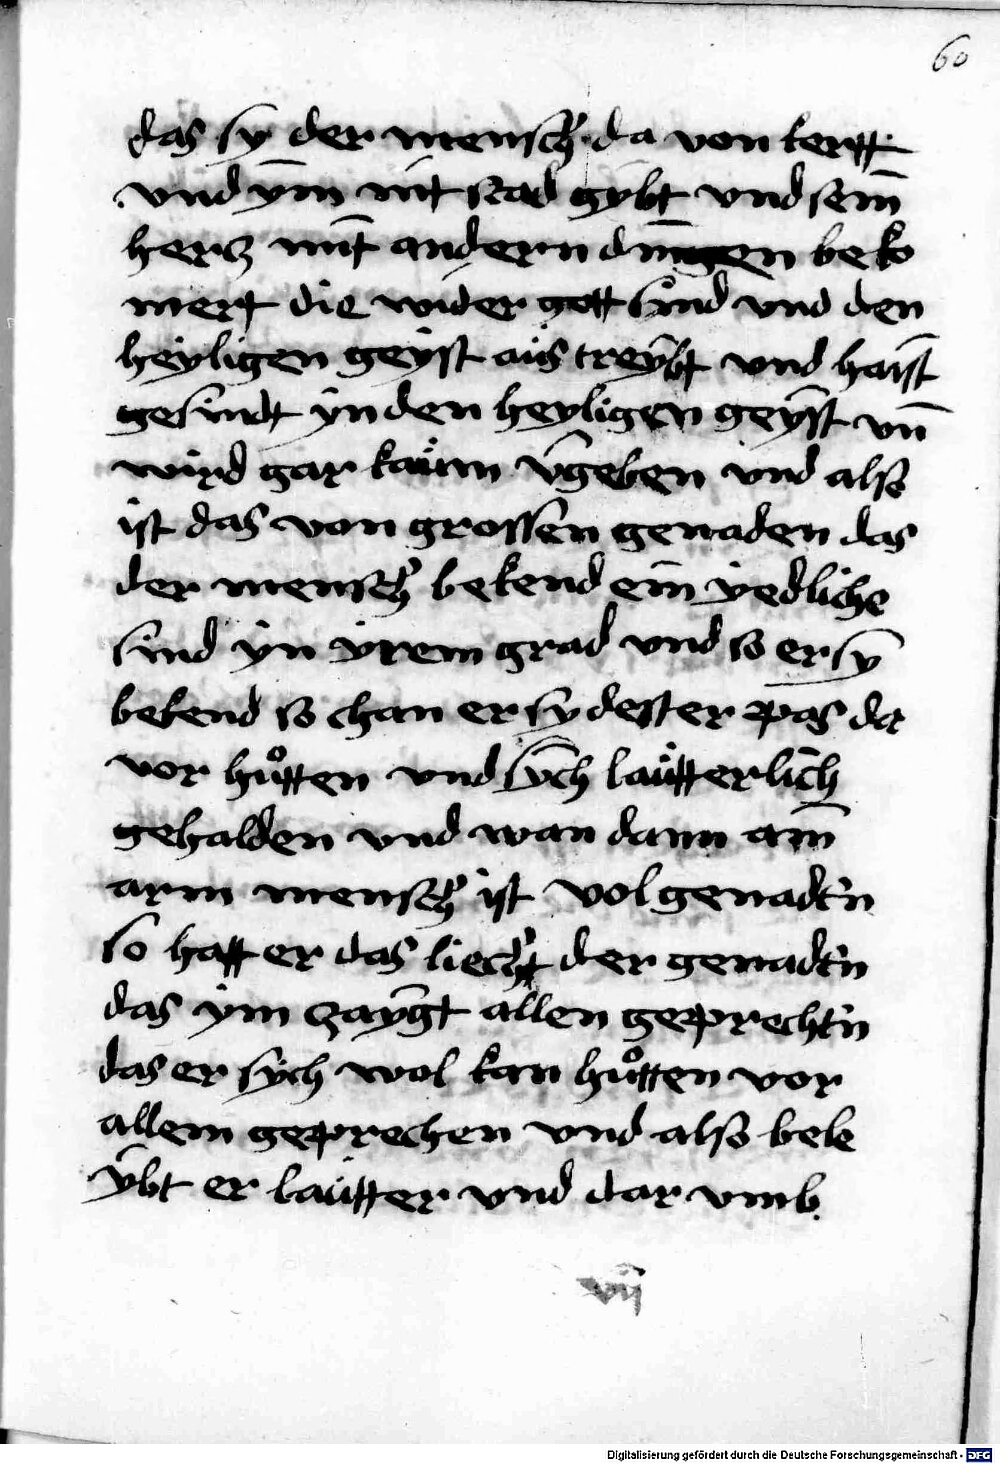 60
das sy der mensch da von kertt
vnd ym nit stad gybt vnd sein
hercz mit andern dingen beko
mert die wider gott sind vnd den
heyligen geyst aus treybt vnd haist
gesindt yn den heyligen geyst vn̄
wird gar kaum v̄geben vnd also
ist das von grossen genaden das
der mensch bekend ein yedliche
sind yn yrem grad vnd so er sy
bekend so chan er sy dester pas da
vor hůtten vnd sych lautterlich
gehalden vnd wan dann ain
arm mensch ist vol genadtn
so hatt er das liecht der genadtn
das ym zaygt allen geprechtn
das er sych wol kan hůtten vor
allem geprechen vnd also bele
ybt er lautter vnd dar vmb
vij
Digitalisierung gefördert durch die Deutsche Forschungsgemeinschaft - DFG